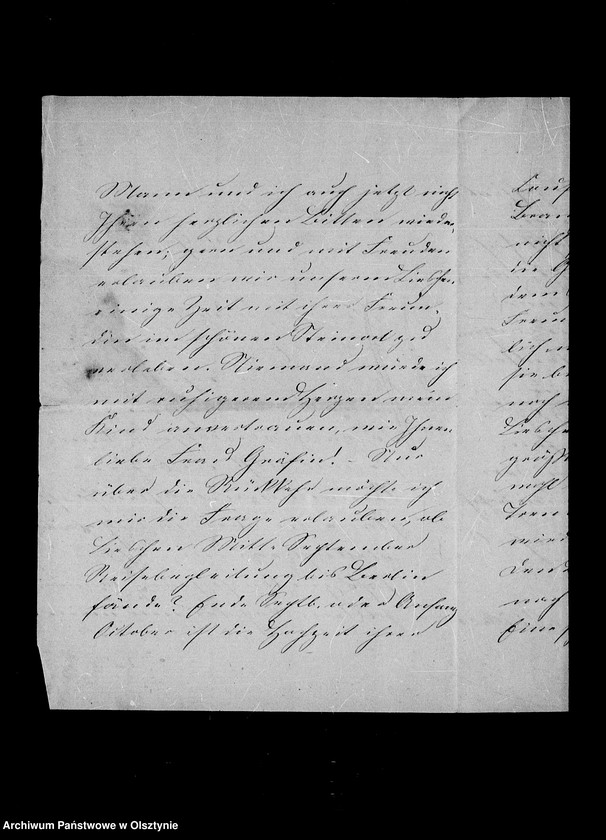 Mann und ich auch jetzt nicht
Ihren herzlichen Bitten wieder-
stehen, gern und mit Freuden
erlauben wir unserm Lieschen
einige Zeit mit ihrer Freun-
din im schönen Steinort zu
verleben. Niemand würde ich
mit ruhigerem Herzen mein
Kind anvertrauen, wie Ihnen
liebe Frau Gräfin! - Nur
über die Rückkehr möchte ich
mir die Frage erlauben, ob
Lieschen Mitte September
Reisebegleitung bis Berlin
fände? Ende Septb. oder Anfang
October ist die Hochzeit ihrer
nicht
die
noch
Liesche
wohl
noch
Eine
Archiwum Państwowe w Olsztynie